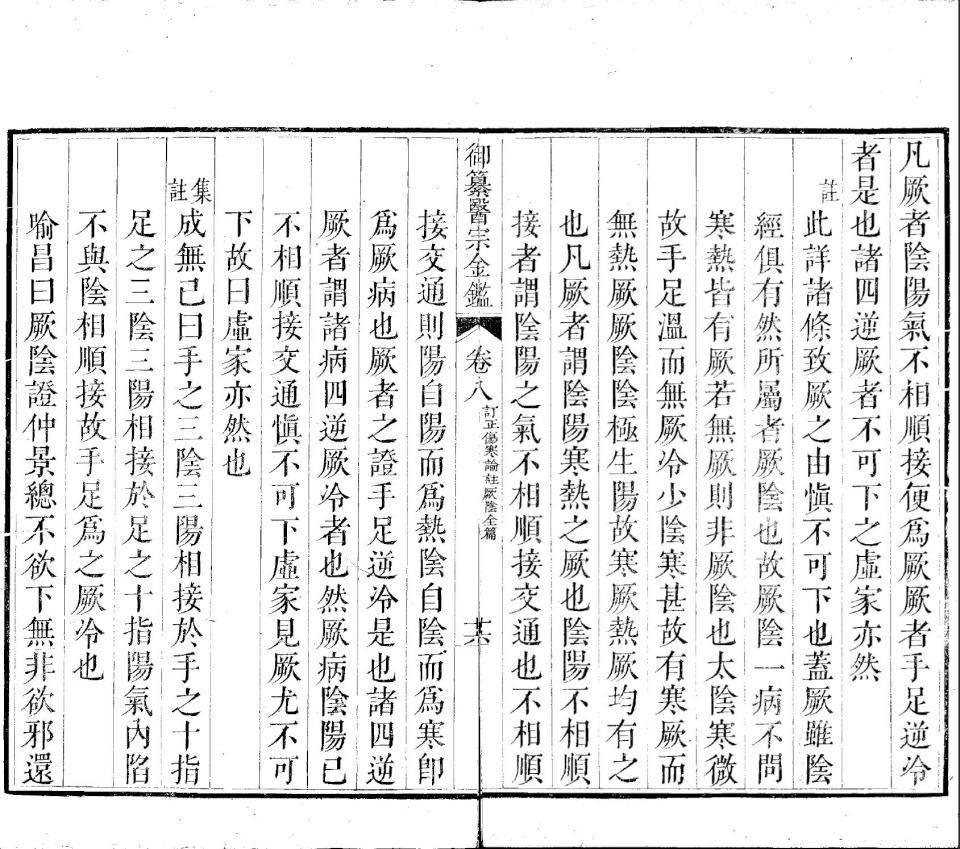 凡厥者陰陽氣不相順接便爲厥厥者手足逆冷
者是也諸四逆厥者不可下之虛家亦然
註
此詳諸條致厥之由慎不可下也蓋厥雖陰
經俱有然所屬者厥陰也故厥陰一病不問
寒熱皆有厥若無厥則非厥陰也太陰寒微
故手足溫而無厥冷少陰寒甚故有寒厥而
無熱厥厥陰陰極生陽故寒厥熱厥均有之
也凡厥者謂陰陽寒熱之厥也陰陽不相順
接者謂陰陽之氣不相順接交通也不相順
御纂醫宗金鑑
卷八
訂正傷寒論註厥陰全篇
接交通則陽自陽而爲熱陰自陰而爲寒卽
爲厥病也厥者之證手足逆冷是也諸四逆
厥者謂諸病四逆厥冷者也然厥病陰陽已
不相順接交通慎不可下虛家見厥尤不可
下故曰虛家亦然也
集註
成無己曰手之三陰三陽相接於手之十指
足之三陰三陽相接於足之十指陽氣內陷
不與陰相順接故手足爲之厥冷也
喻昌曰厥陰證仲景總不欲下無非欲邪還